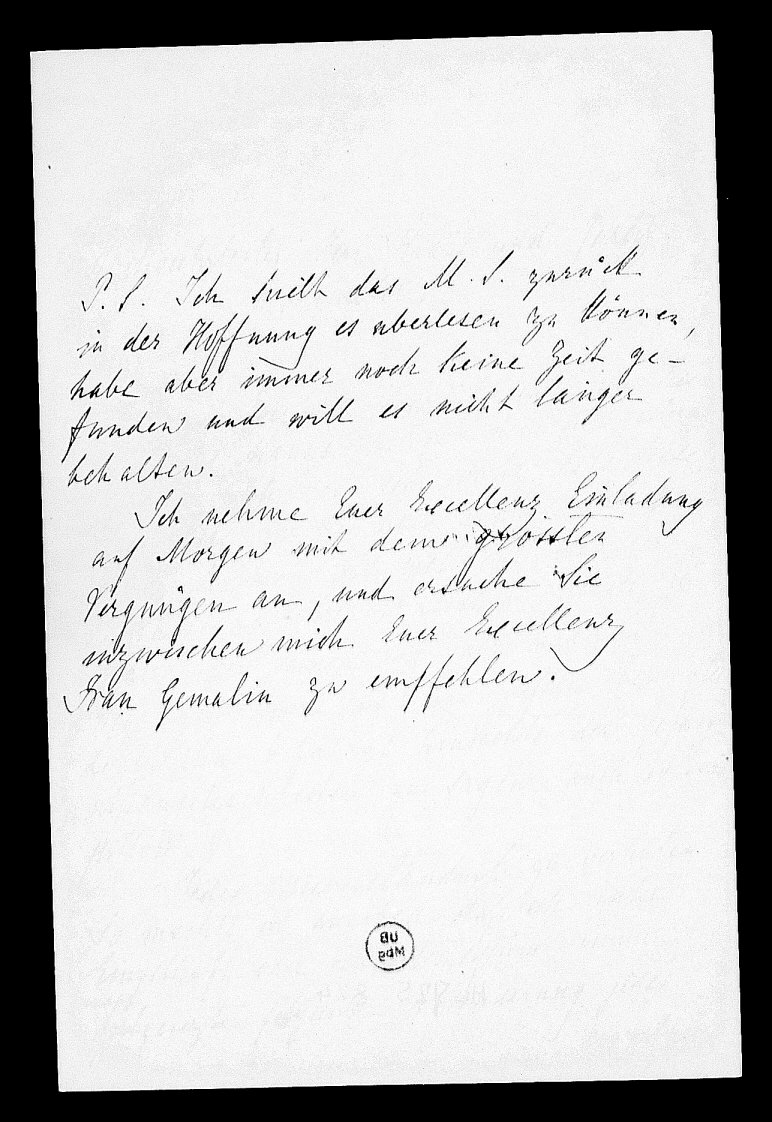 P. S. Ich hielt das M. S. zurück
in der Hoffnung es uberlesen zu können,
habe aber immer noch keine Zeit ge-
funden und will es nicht länger
behalten.
Ich nehme Euer Excellenz Einladung
auf Morgen mit dem grössten
Vergnügen an, und ersuche Sie
inzwischen mich Euer Excellenz
Frau Gemalin zu empffehlen.
UB
Mbg